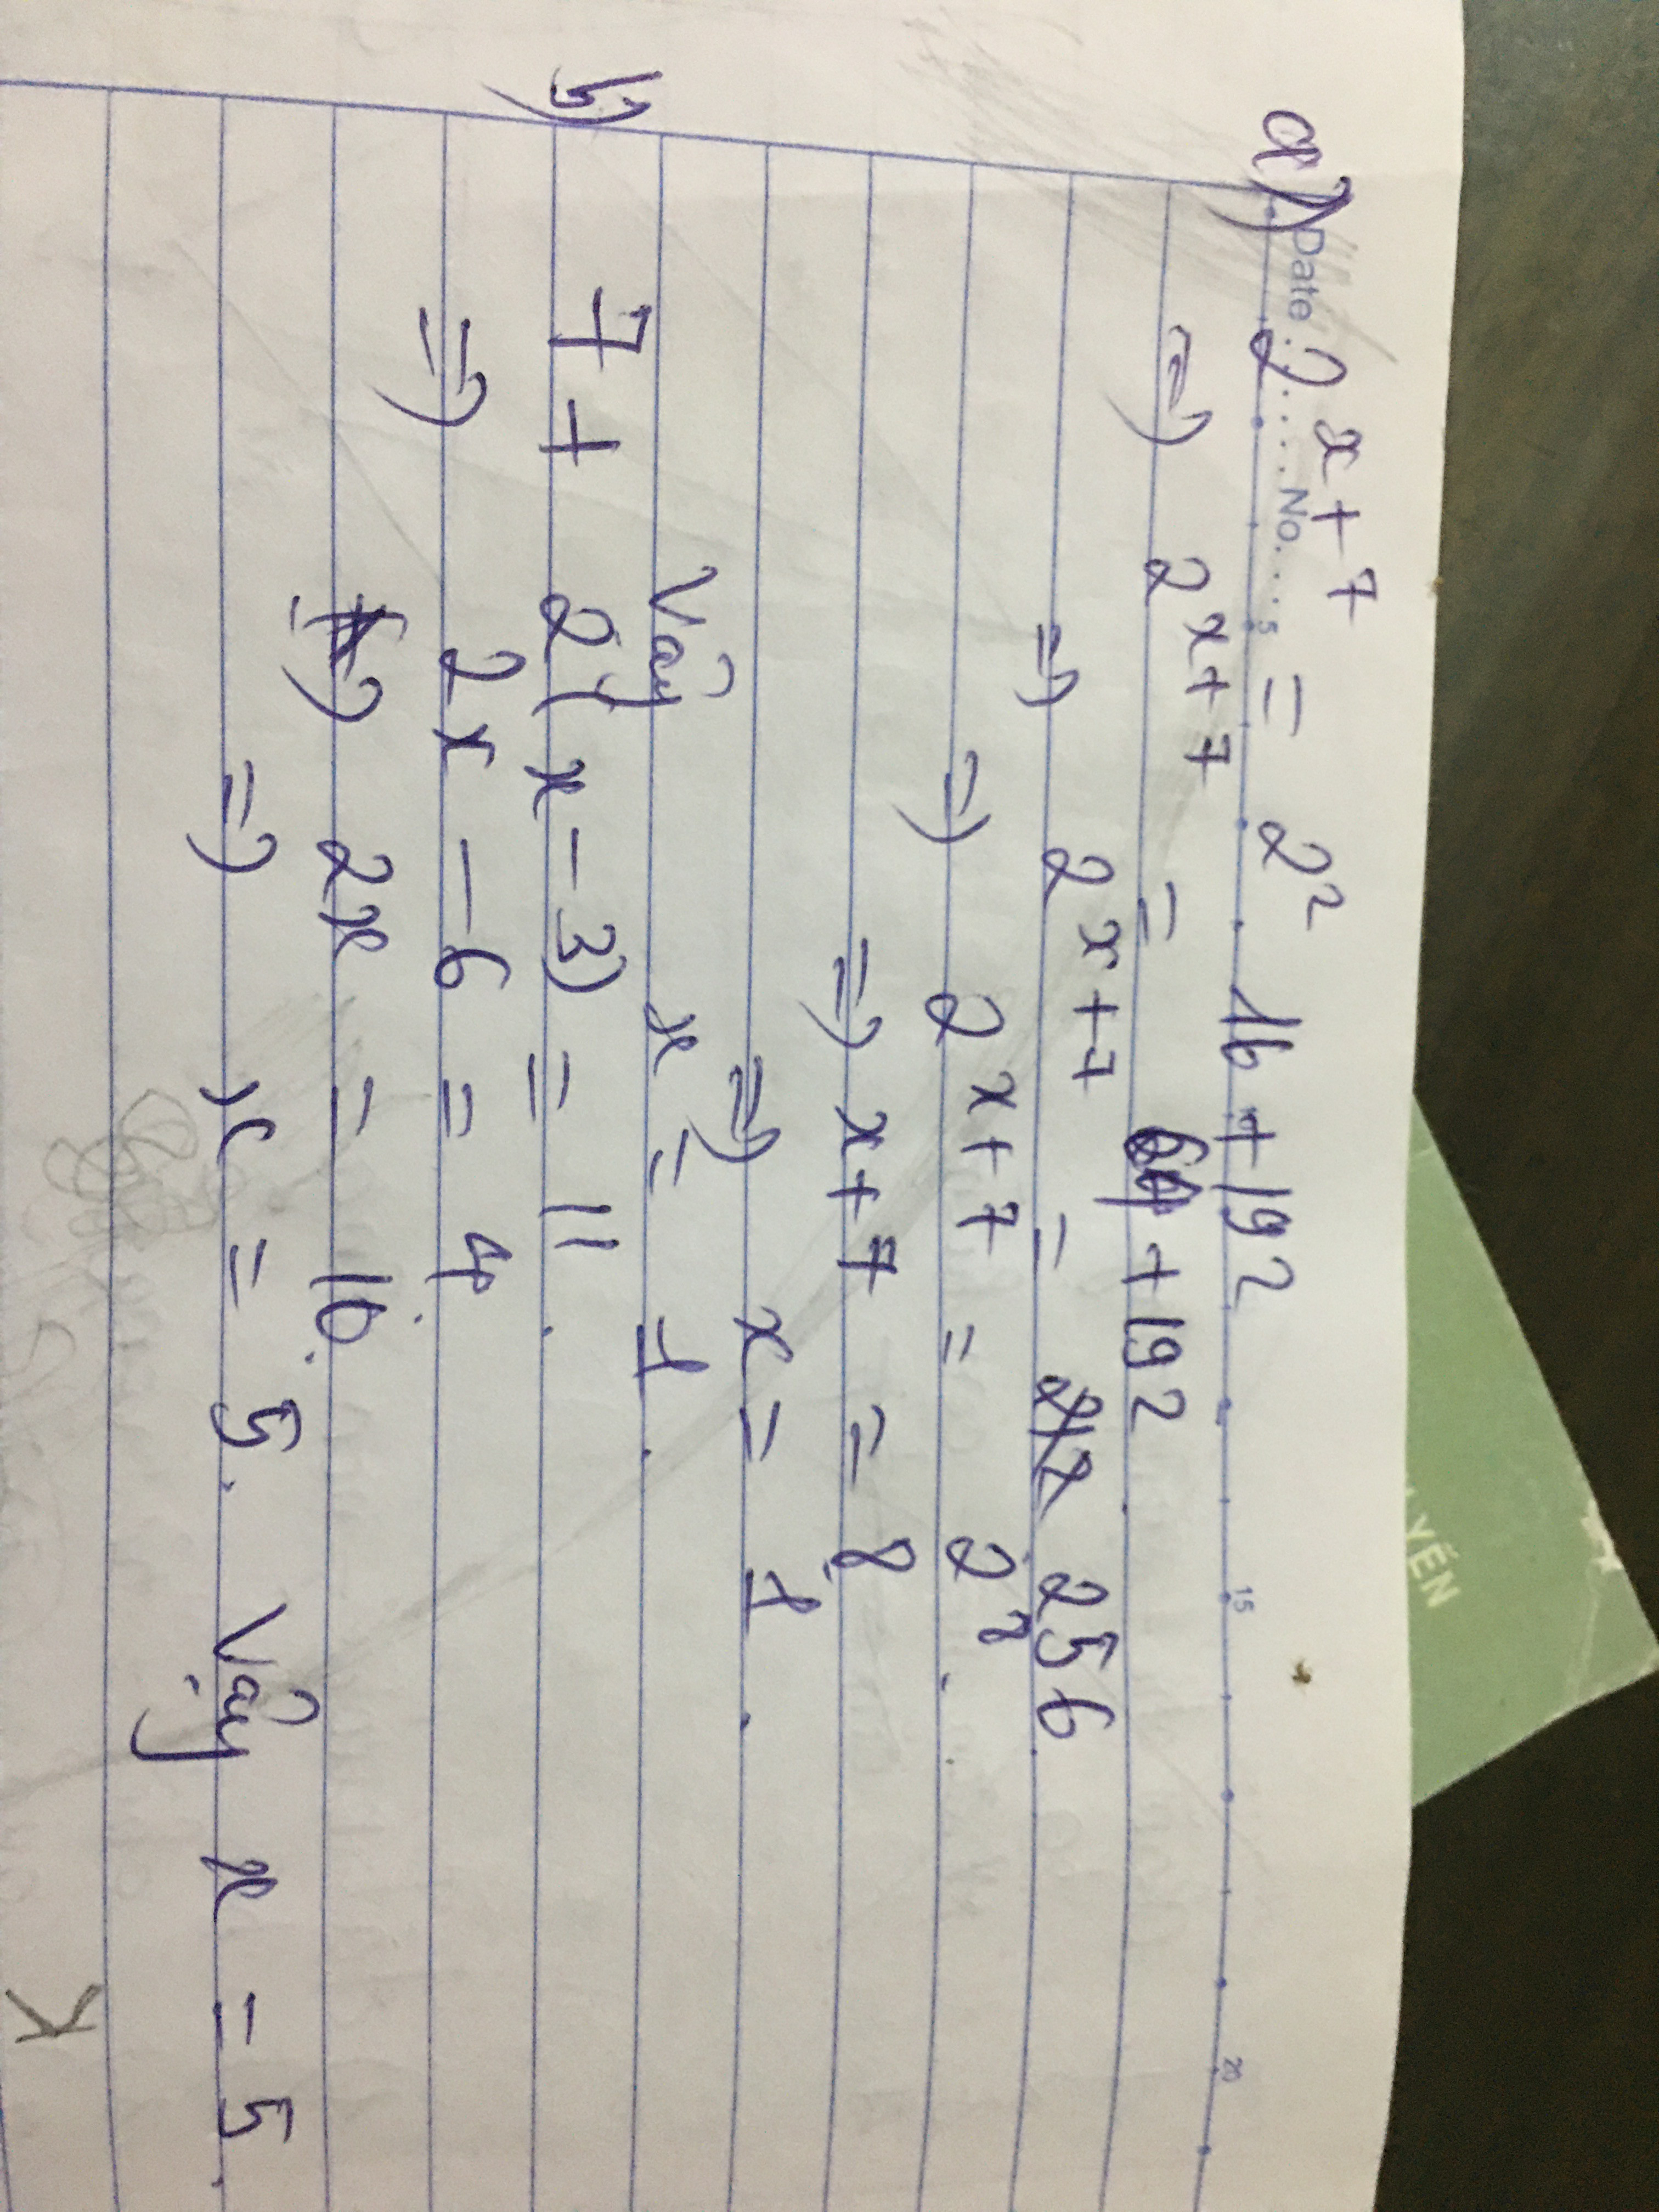 Date ........ No. ........
a) 2^{x+7} = 2² . 16 + 192
=) 2^{x+7} = 64 + 192
=) 2^{x+7} = 256
=) 2^{x+7} = 2⁸.
=) x + 7 = 8
=) x = 1.
Vậy x = 1.
b) 7 + 2(x - 3) = 11.
=) 2x - 6 = 4.
=) 2x = 10.
=) x = 5. Vậy x = 5.
K
5 10 15 20
YẾN